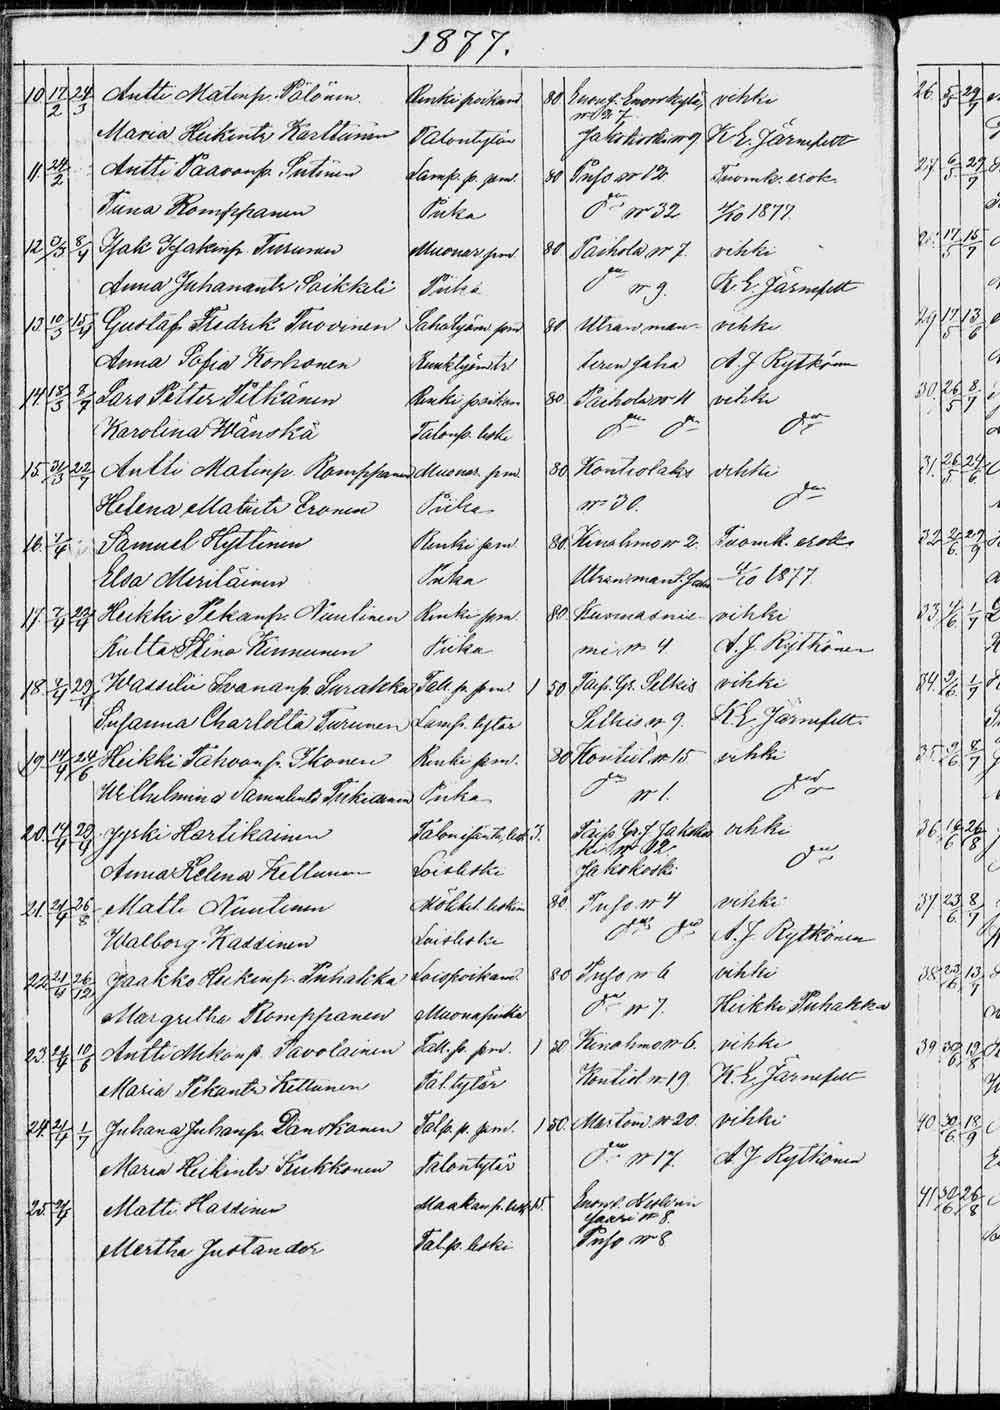 1877.
10. 17/2 24/3 Antti Matinp. Pölönen Renki poikam. 80 Enonk. Enonkylä vihki
№ 27
Maria Heikintr Karttunen Talontytär Jakokoski № 9 K E. Järnefelt
11. 24/2 Antti Paavonp. Sutinen Lamp. p. pm. 80 Puso № 12 Tuomk. erok.
Tiina Romppanen Piika № 32 4/10 1877.
12. 8/4 Isak Isakinp Turunen Muonar. pm. 80 Paihola № 7. vihki
Anna Juhanantr Saikkeli Piika № 9. K. E. Järnefelt
13. 10/3 15/4 Gustaf Fredrik Tuovinen Sahatyöm pm 80. Utran man- vihki
Anna Sofia Korhonen Ruukktyömtr teren saha A. J Rytkönen
14. 18/3 8/7 Lars Petter Pitkänen Renki poikam 80. Paihola № 11 vihki
Karolina Wänskä Talonp. leski
15. 31/3 22/7 Antti Matinp Romppanen Muonar. pm. 80 Kontiolaks vihki
Helena Matintr Eronen Piika № 30.
16. 7/4 Samuel Hyttinen Renki pm. 80. Kinahmo № 2. Tuomk. erok.
Elsa Meriläinen Piika Utran mant. saha 4/10 1877.
17. 7/4 29/4 Heikki Pekanp. Nuutinen Renki pm. 80 Kuismasnie- vihki
Kutta Stina Kinnunen Piika mi № 4 A. J. Rytkönen
18. 7/4 29/4 Wassilii Iwananp. Surakka Tall. p. pm. 1 50 Taip. Gr. Selkis vihki
Susanna Charlotta Turunen Lamp. tytär Selkis № 9. K. E. Järnefelt.
19. 14/4 24/6 Heikki Tahvonp. Ikonen Renki pm. 80 Kontiol. № 15 vihki
Wilhelmina Samulintr Piika № 1.
20. 14/4 29/4 Jyrki Hartikainen 3. vihki
№ 12
Anna Helena Kettunen Loisleski Jakokoski
21. 21/4 26/8 Matti Nuutinen Mökkil. leskim 80. Puso № 4 vihki
Walborg Kassinen Loisleski A. J Rytkönen
22. 21/4 26/12 Jaakko Heikinp. Puhakka Loispoikam 80 Puso № 6 vihki
Margretha Romppanen Muonapiika № 7. Heikki Puhakka
23. 21/4 10/6 Antti Mikonp. Savolainen Tall. p. pm. 1 50 Kinahmo № 6. vihki
Maria Pekantr Kettunen Tal. tytär Kontiol № 19. K. E. Järnefelt
24. 21/4 1/7 Juhana Juhanp. Danskanen Talp. p. pm. 1 50. Martom. № 20. vihki
Maria Heikintr Kukkonen Talontytär № 17. A J Rytkönen
25. Matti Hassinen 15. Enonk.
saari № 8.
Mertha Justander Talp. leski Puso № 8
26. 5/5 29/7
27. 6/5 29/7
17/5 15/7
29 17/5 13/6
30. 26/5 8/7
31. 26/5 24/6
32 2/6 29/9
33. 4/6 1/7
34. 9/6 1/7
35. 9/6 8/7
36 16/6 26/8
37 23/6 8/7
38 23/6 13/7
39. 30/6 19/8
40 30/6 18/9
41 30/6 26/8